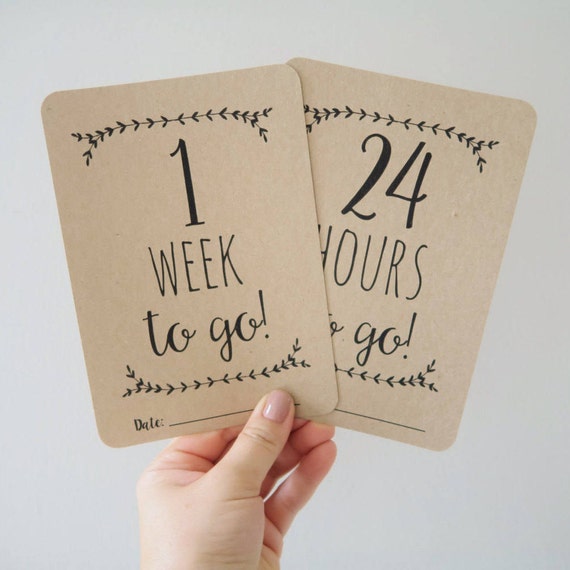 1
WEEK
to go!
Date:
24
HOURS
to go!